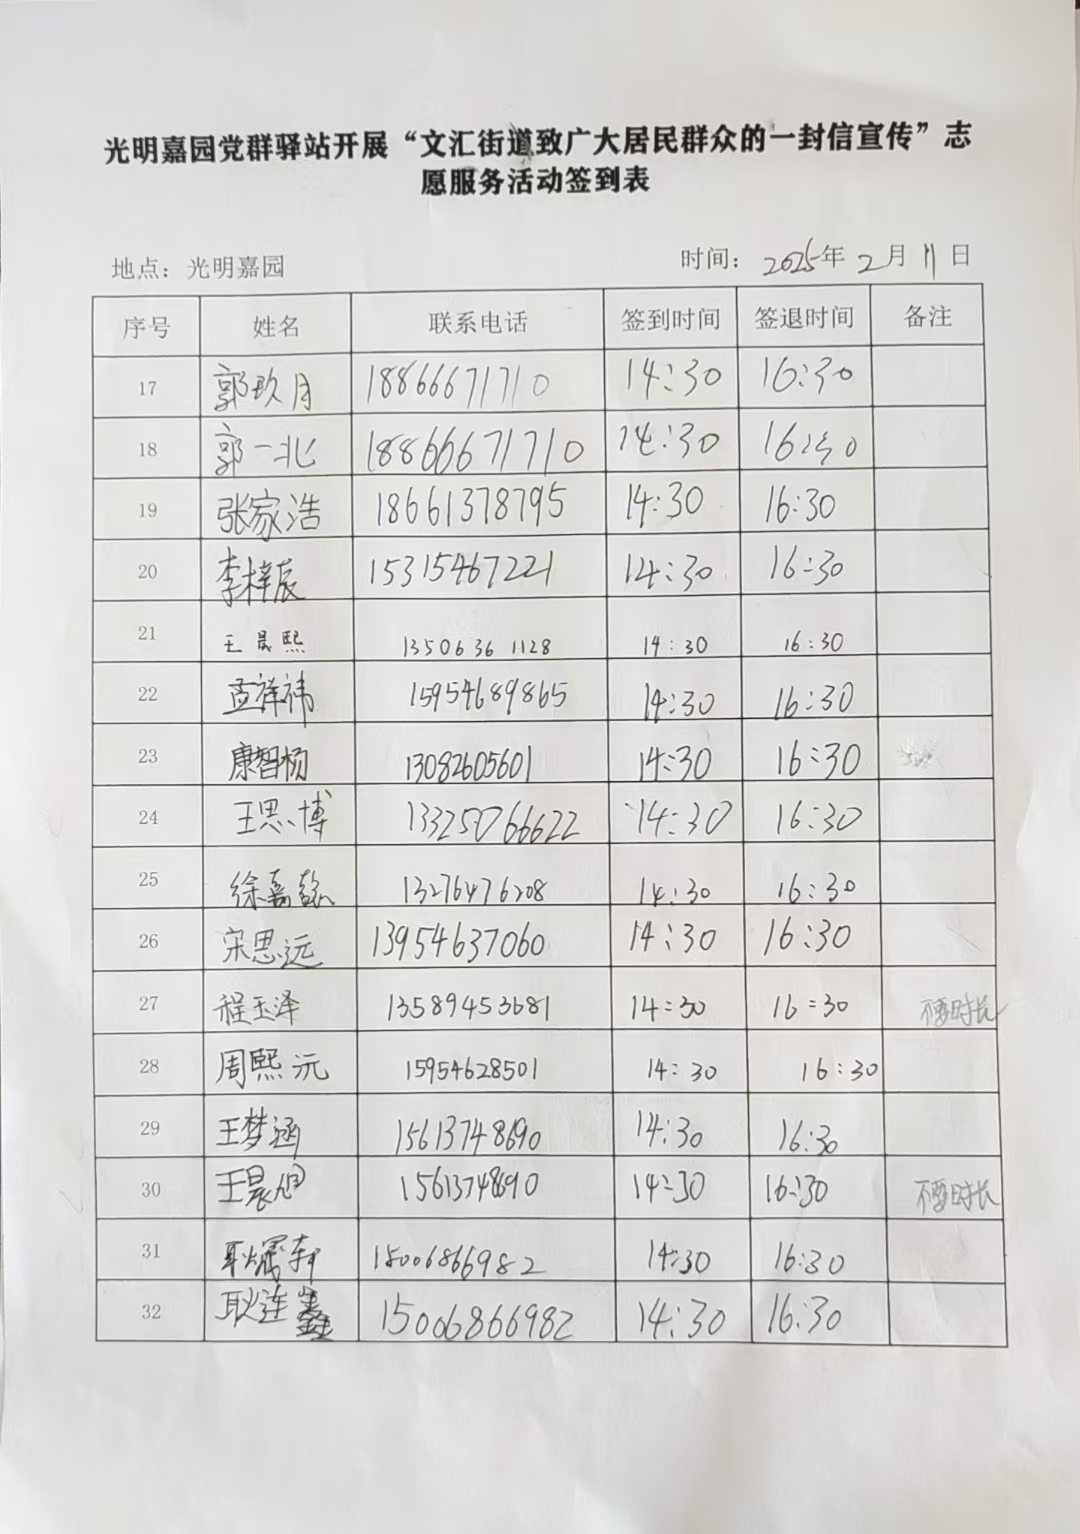 光明嘉园党群驿站开展“文汇街道致广大居民群众的一封信宣传”志
愿服务活动签到表
地点：光明嘉园 时间：2025年2月11日
序号 姓名 联系电话 签到时间 签退时间 备注
17 郭玖月 18866671710 14:30 16:30
18 郭一北 18866671710 14:30 16:30
19 张家浩 18661378795 14:30 16:30
20 李梓辰 15315467221 14:30 16:30
21 王晨熙 13506361128 14:30 16:30
22 孟祥祎 15954689865 14:30 16:30
23 康智杨 13082605601 14:30 16:30
24 王思博 13325076622 14:30 16:30
25 徐嘉懿 13276476208 14:30 16:30
26 宋思远 13954637060 14:30 16:30
27 程玉泽 13589453681 14:30 16:30 不要时长
28 周熙沅 15954628501 14:30 16:30
29 王梦涵 15613748690 14:30 16:30
30 王晨旭 15613748690 14:30 16:30 不要时长
31 耿耀轩 15006866982 14:30 16:30
32 耿连鑫 15006866982 14:30 16:30